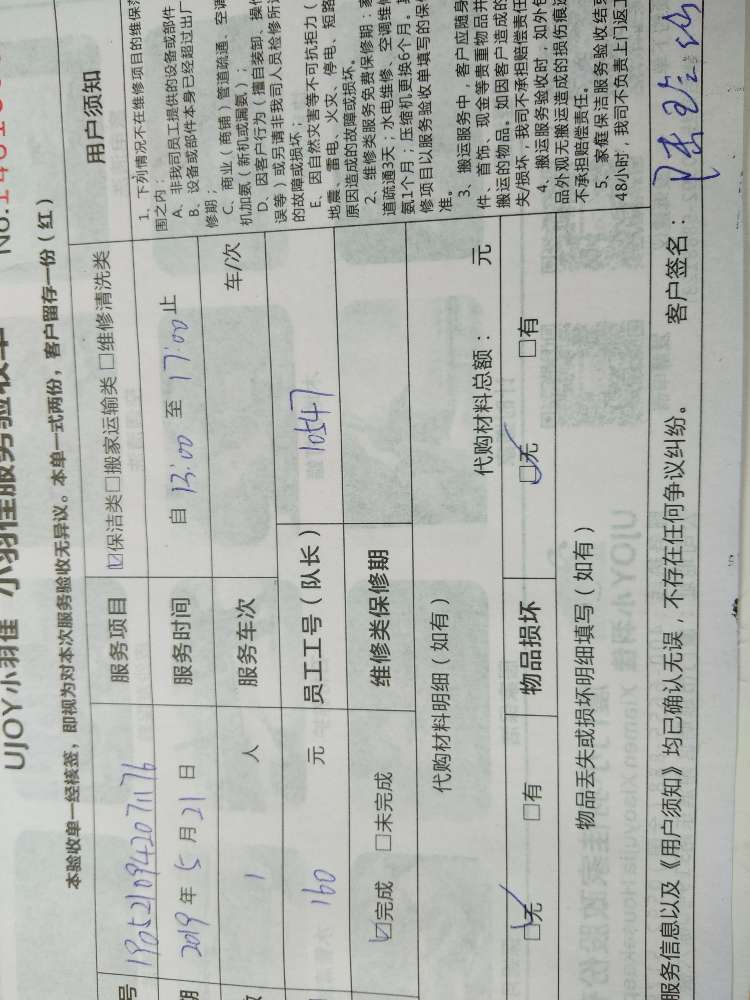 UJOY小羽佳 小羽佳服务验收单
No.
本验收单一经核签，即视为对本次服务验收无异议。本单一式两份，客户留存一份（红）
号 190521094207117 6 服务项目 ☑保洁类□搬家运输类 □维修清洗类
期 2019 年 5 月 21 日 服务时间 自 13:00 至 17:00 止
1 人 服务车次 车/次
160 元 员工工号（队长） 10547
☑完成 □未完成 维修类保修期
代购材料明细（如有） 代购材料总额： 元
☑无 □有 物品损坏 ☑无 □有
物品丢失或损坏明细填写（如有）
用户须知
1、下列情况不在维修项目的维保范
围之内：
A、非我司员工提供的设备或部件
B、设备或部件本身已经超过出厂
修期；
C、商业（商铺）管道疏通、空调
机加氨（新机或漏氨）；
D、因客户行为（擅自装卸、操作
误等）或另请非我司人员检修所造
的故障或损坏；
E、因自然灾害等不可抗拒力（
地震、雷电、火灾、停电、短路
原因造成的故障或损坏。
2、维修类服务免费保修期：家
道疏通3天；水电维修、空调维修
氨1个月；压缩机更换6个月。其
修项目以服务验收单填写的保修
准。
3、搬运服务中，客户应随身
件、首饰、现金等贵重物品并
搬运的物品。如因客户造成的
失/损坏，我司不承担赔偿责任
4、搬运服务验收时，如外包
品外观无搬运造成的损伤痕迹
不承担赔偿责任。
5、家庭保洁服务验收结束
48小时，我司不负责上门返工
服务信息以及《用户须知》均已确认无误，不存在任何争议纠纷。 客户签名：